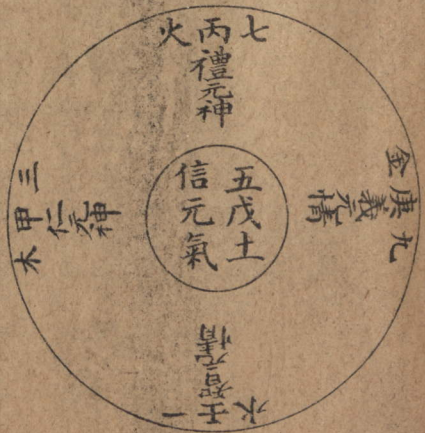 七丙火
禮元神
九庚金
義元情
五戊土
信元氣
三甲木
仁元
一壬水
智元